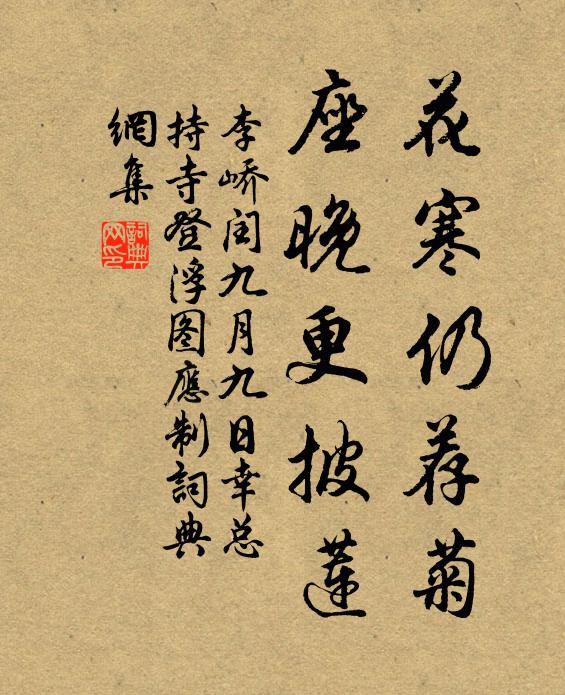 花寒仍荐菊
座晚更披莲
李峤闰九月九日幸总
持寺登浮图应制词典
網集
詞典
网印